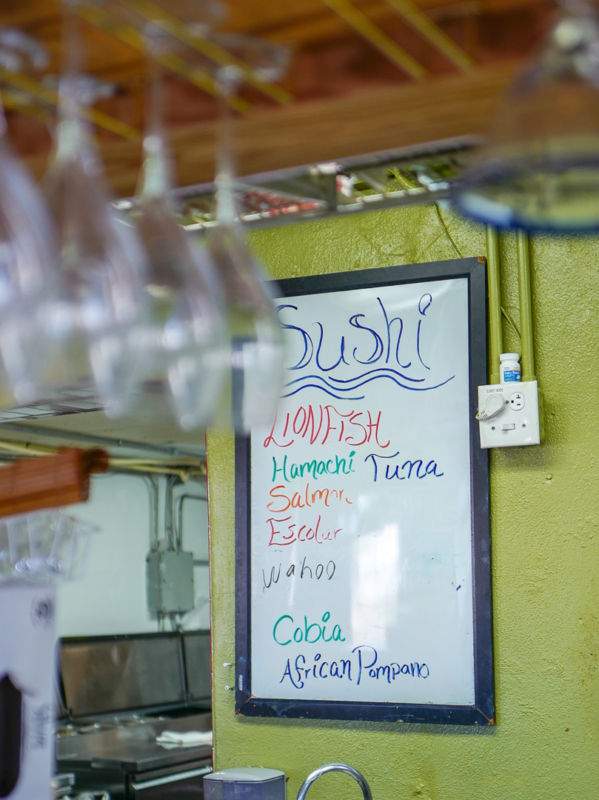 Sushi
LIONFISH
Hamachi Tuna
Salmon
Escolar
Wahoo
Cobia
African Pompano